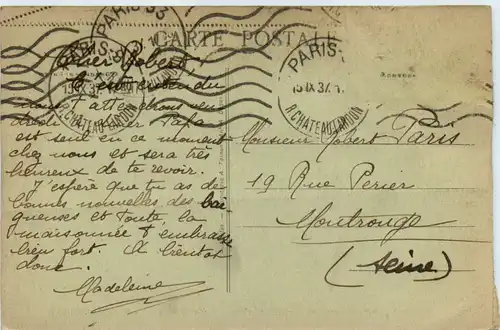 CARTE POSTALE
PARIS
15 IX 37
R. CHATEAU LANDON
PARIS-
15 IX 37
R. CHATEAU LANDON
Cher Robert,
C'est entendu
nous t'attendrons
Papa
est seul en ce moment
chez nous et sera très
heureux de te revoir.
J'espère que tu as de
bonnes nouvelles des bai-
gneuses et toute la
maisonnée t'embrasse
bien fort. A bientôt
donc.
Madeleine
Monsieur Robert Paris
19 Rue Perier
Montrouge
(Seine)